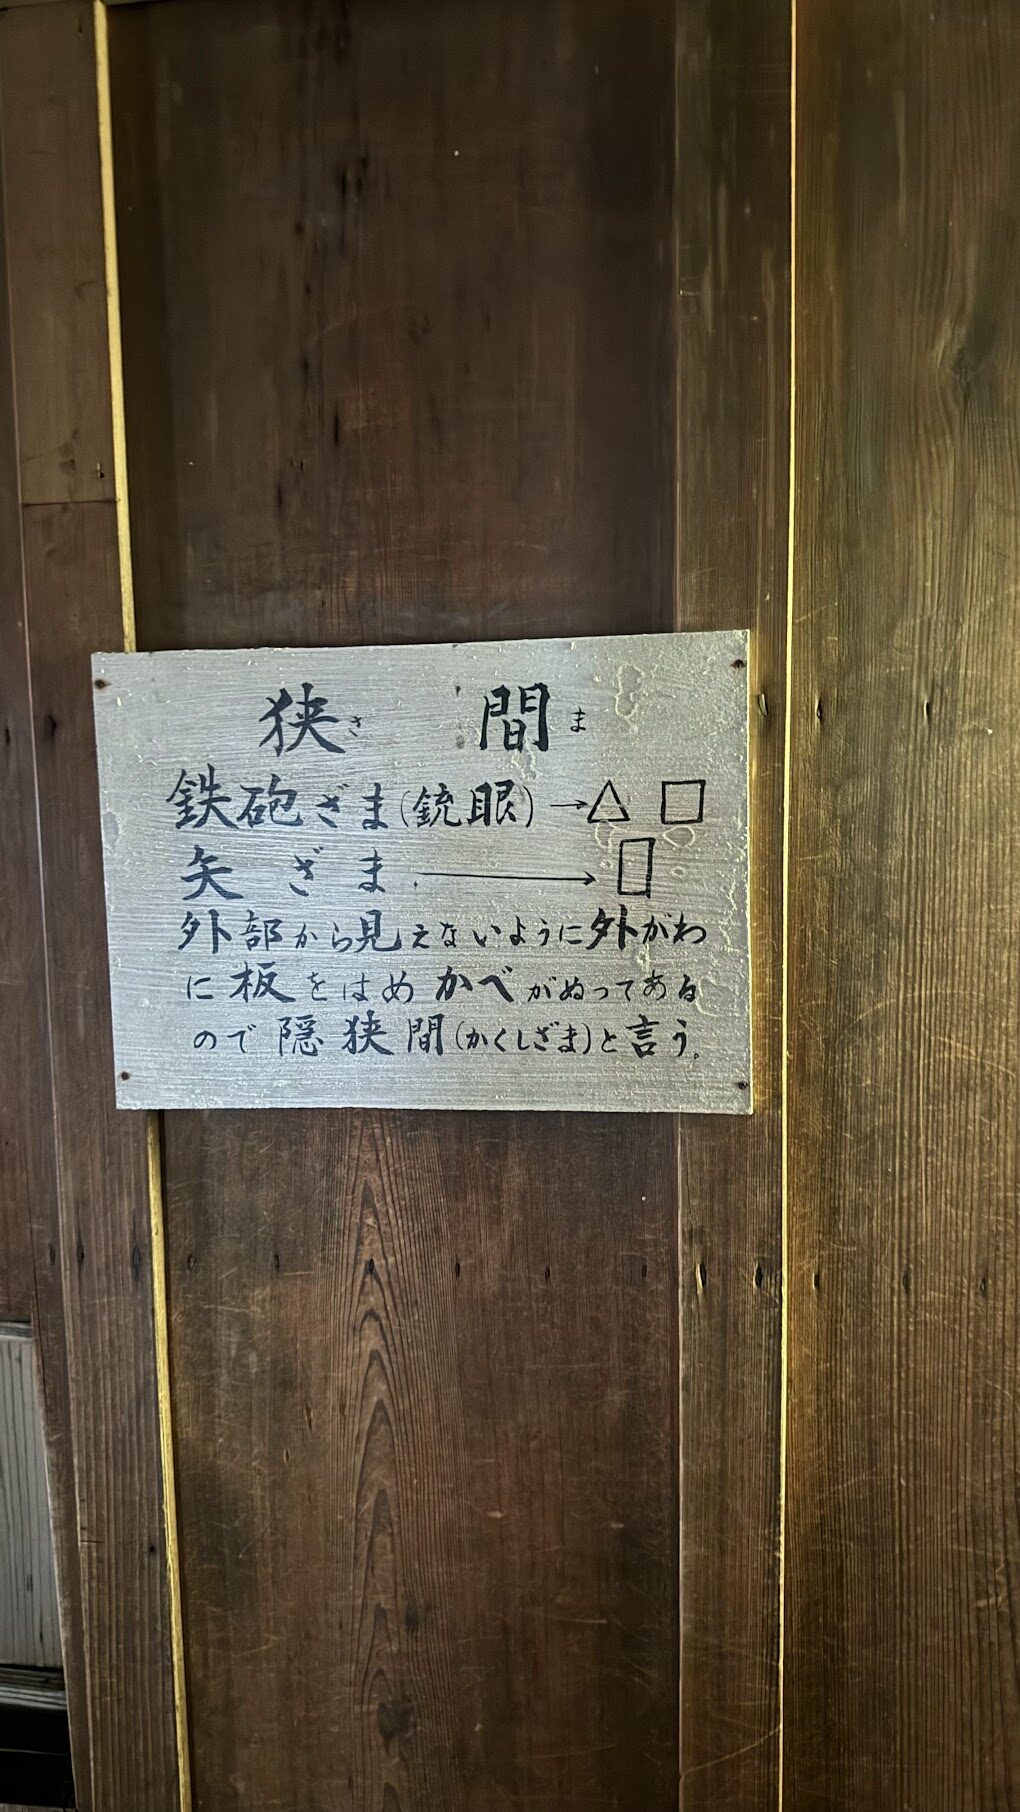 狭さ 間ま
鉄砲ざま(銃眼)→△ □
矢ざま ⟶ ▯
外部から見えないように外がわ
に板をはめかべがぬってある
ので隠狭間(かくしざま)と言う。